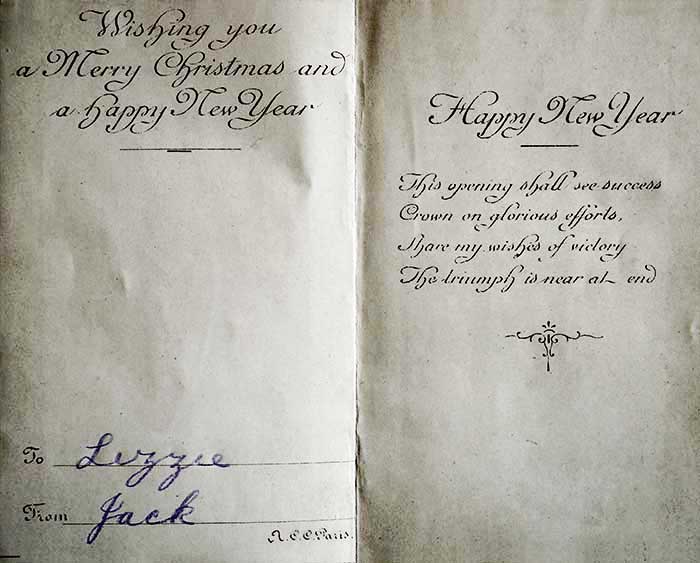 Wishing you
a Merry Christmas and
a Happy New Year
To Lizzie
From Jack
Paris.
Happy New Year
This opening shall see success
Crown on glorious efforts,
Share my wishes of victory
The triumph is near at end